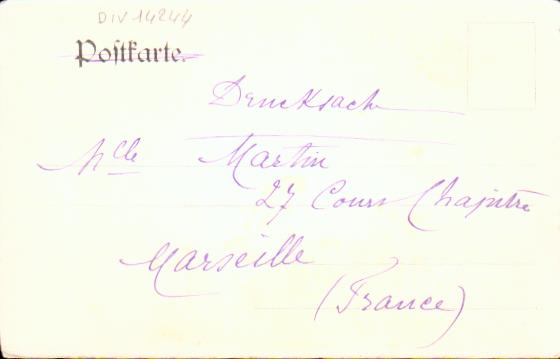 DIV 14244
Postkarte.
Drucksach
Mlle Martin
27 Cours Chapitre
Marseille
(France)